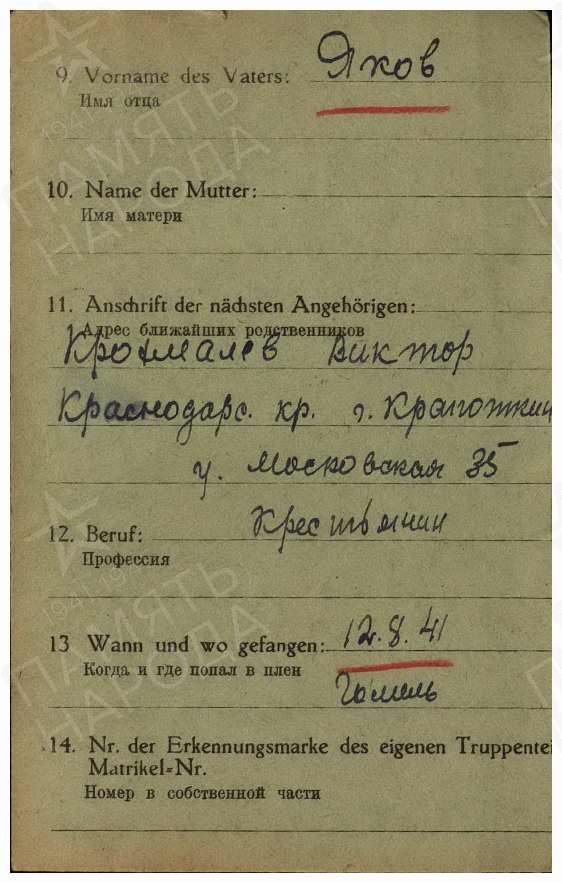 9. Vorname des Vaters: Яков
Имя отца
10. Name der Mutter:
Имя матери
11. Anschrift der nächsten Angehörigen:
Адрес ближайших родственников
Крохмалев Виктор
Краснодарс. кр. г. Крапоткин
у. Московская 35
12. Beruf: Крестьянин
Профессия
13 Wann und wo gefangen: 12.8.41
Когда и где попал в плен
Гомель
14. Nr. der Erkennungsmarke des eigenen Truppentei
Matrikel-Nr.
Номер в собственной части
ПАМЯТЬ
НАРОДА
ПАМЯТЬ
НАРОДА